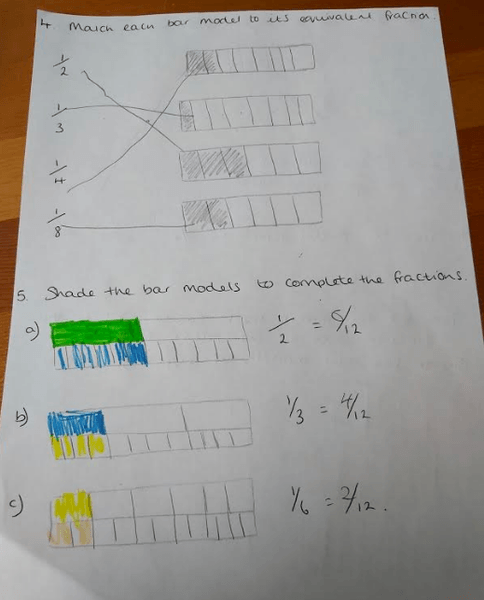 4. Match each bar model to its equivalent fraction.
1/2
1/3
1/4
1/8
5. Shade the bar models to complete the fractions.
a) 1/2 = 6/12
b) 1/3 = 4/12
c) 1/6 = 2/12.